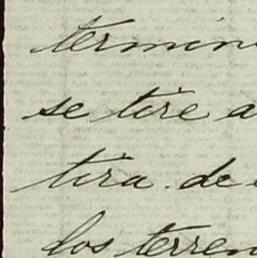 termin
se tire a
tira de
los terren